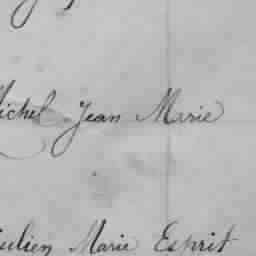 Michel Jean Marie
Julien Marie Esprit